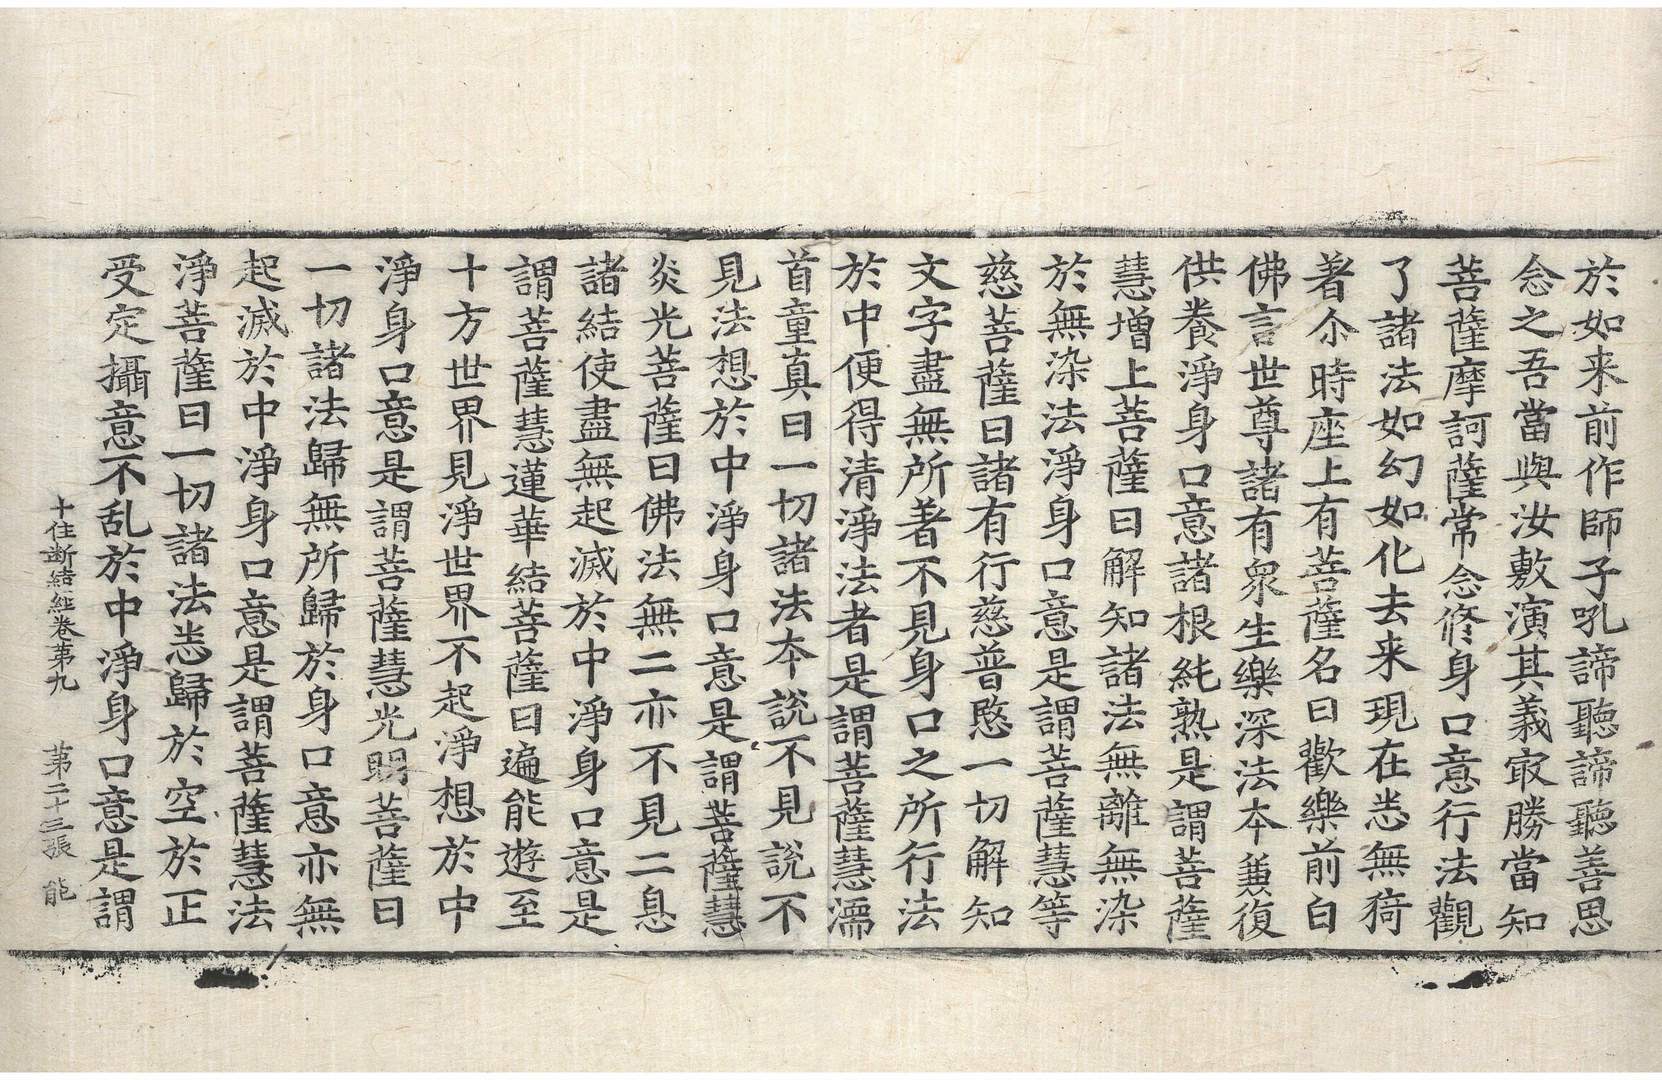 於如来前作師子吼諦聽諦聽善思
念之吾當與汝敷演其義㝡勝當知
菩薩摩訶薩常念修身口意行法觀
了諸法如幻如化去来現在悉無猗
著尒時座上有菩薩名曰歡樂前白
佛言世尊諸有衆生樂深法本兼復
供養淨身口意諸根純熟是謂菩薩
慧增上菩薩曰解知諸法無離無染
於無染法淨身口意是謂菩薩慧等
慈菩薩曰諸有行慈普愍一切解知
文字盡無所著不見身口之所行法
於中便得清淨法者是謂菩薩慧濡
首童真曰一切諸法本說不見說不
見法想於中淨身口意是謂菩薩慧
炎光菩薩曰佛法無二亦不見二息
諸結使盡無起滅於中淨身口意是
謂菩薩慧蓮華結菩薩曰遍能遊至
十方世界見淨世界不起淨想於中
淨身口意是謂菩薩慧光明菩薩曰
一切諸法歸無所歸於身口意亦無
起滅於中淨身口意是謂菩薩慧法
淨菩薩曰一切諸法悉歸於空於正
受定攝意不乱於中淨身口意是謂
十住断結経卷第九 第二十三張 能